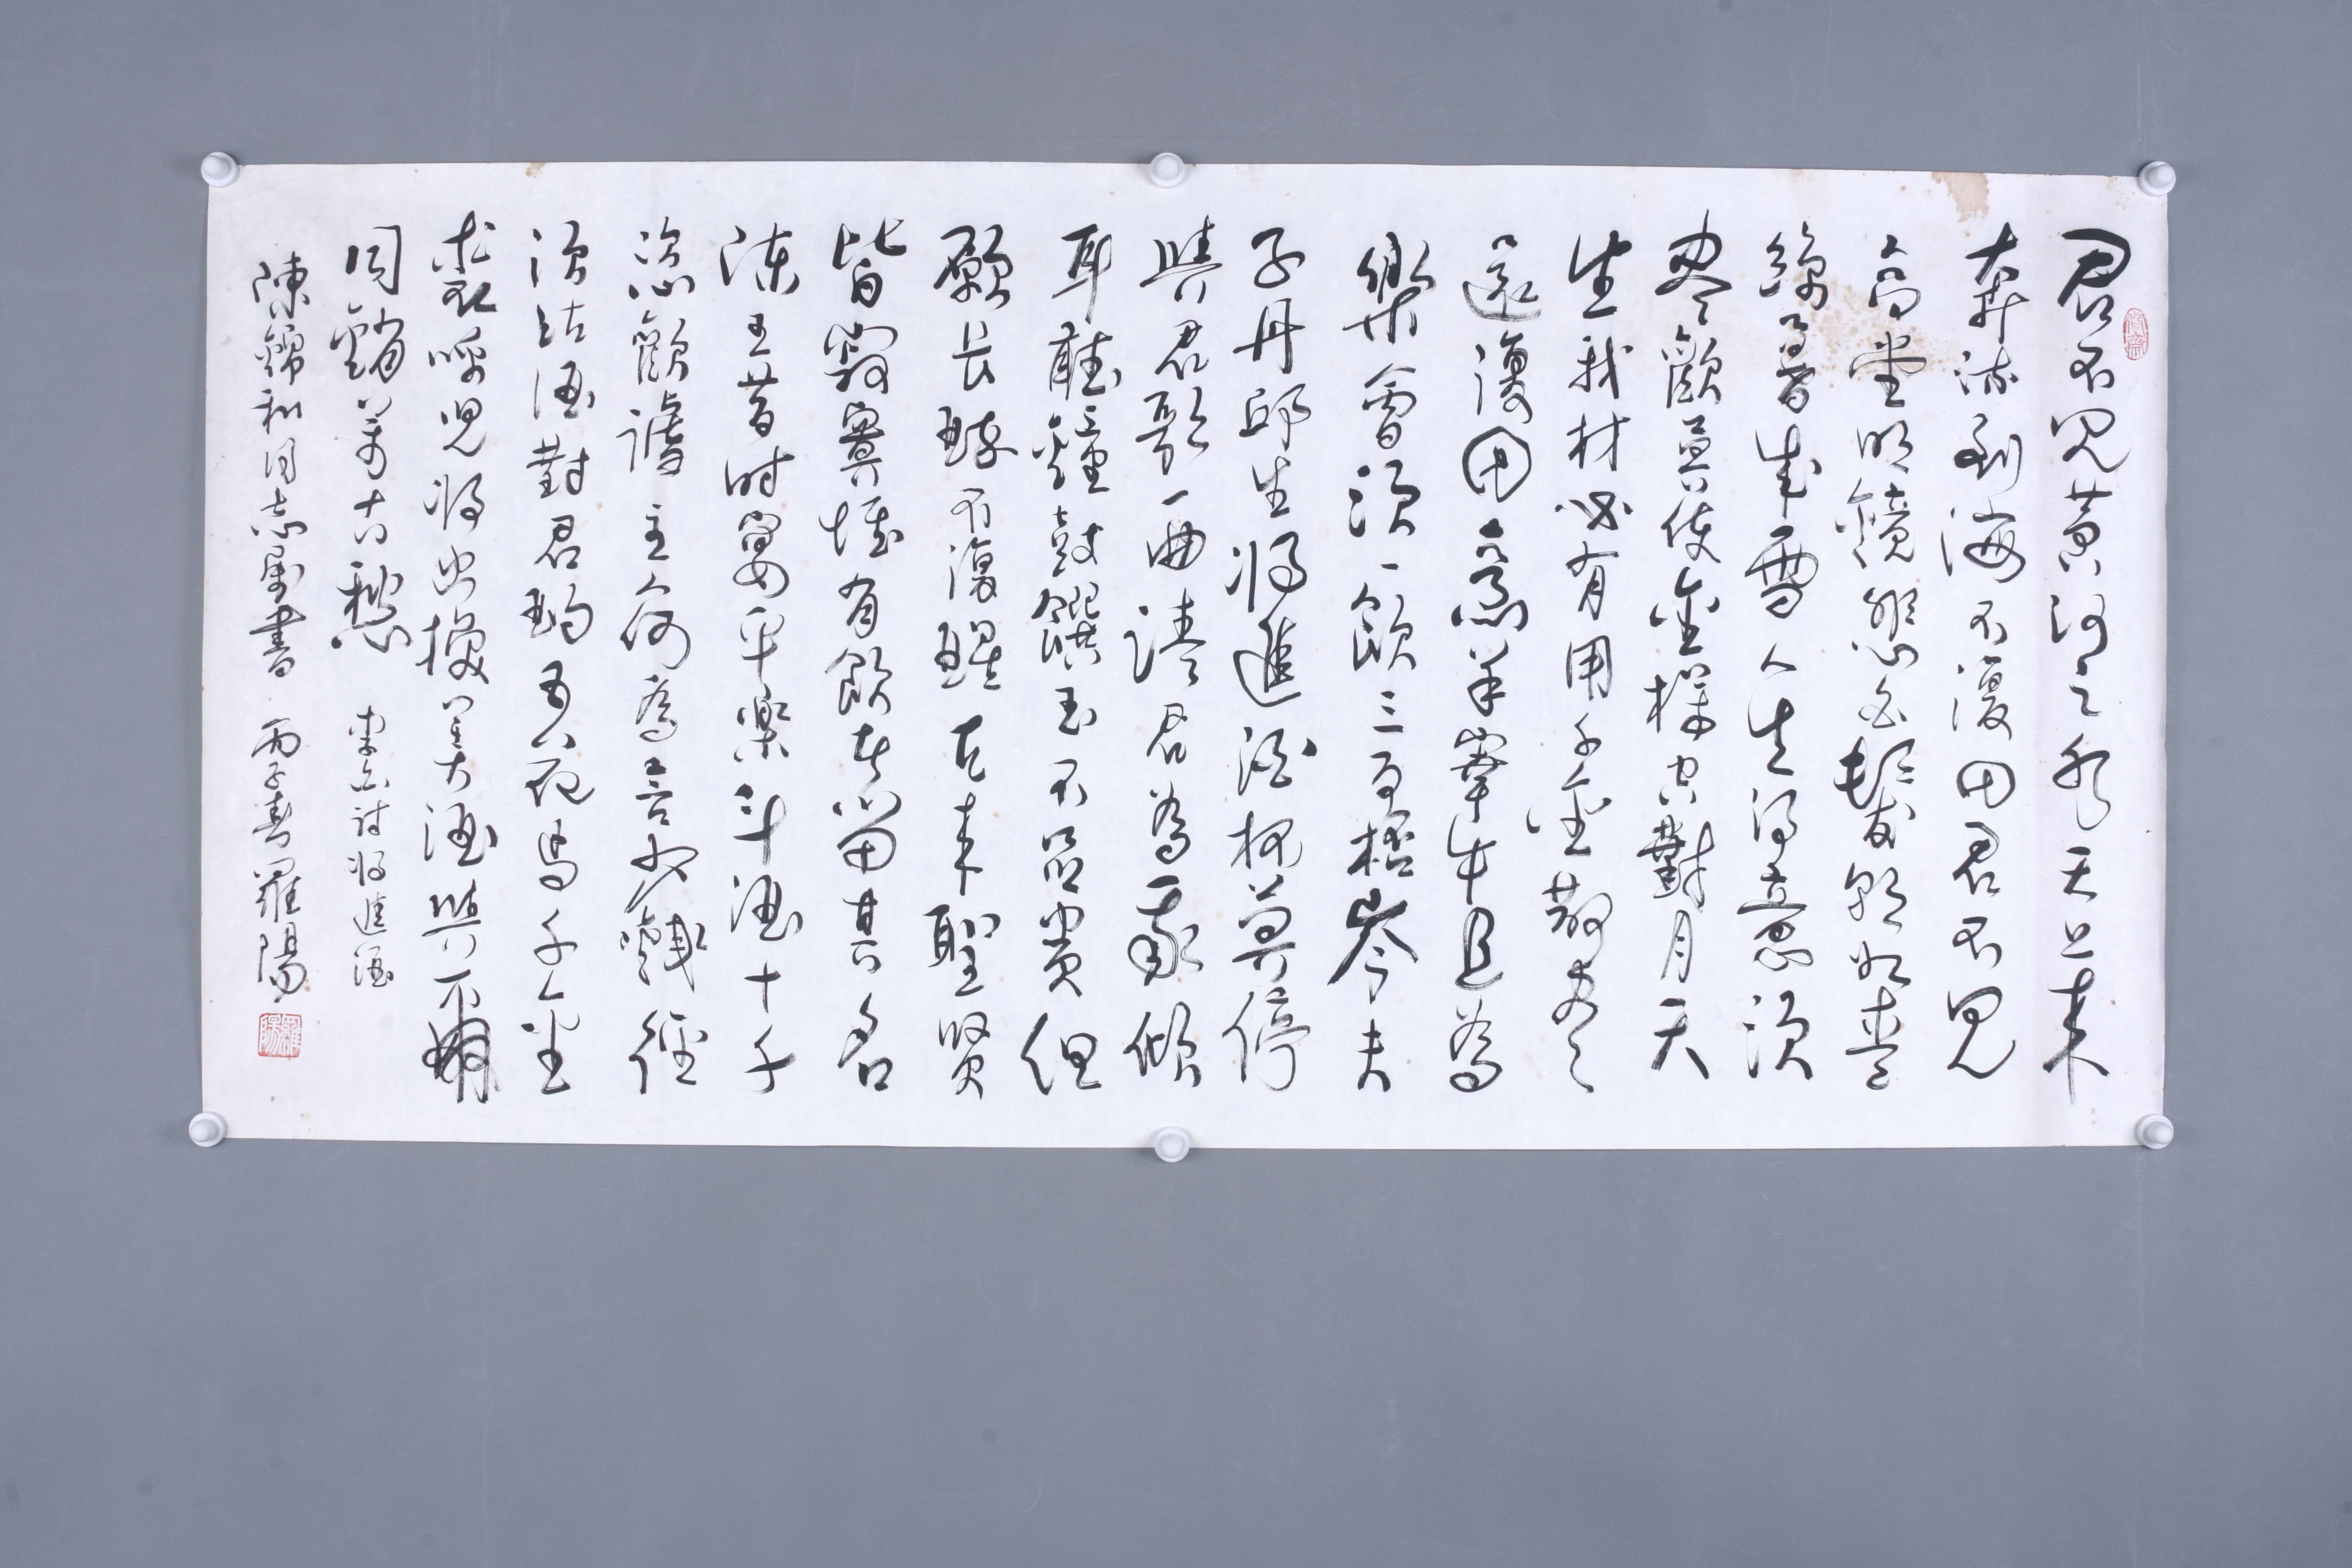 君不見黃河之水天上來
奔流到海不復回君不見
高堂明鏡悲白髮朝如青
絲暮成雪人生得意須
盡歡莫使金樽空對月天
生我材必有用千金散盡
還復回烹羊宰牛且為
樂會須一飲三百杯岑夫
子丹邱生將進酒杯莫停
與君歌一曲請君為我傾
耳聽鐘鼓饌玉不足貴但
願長醉不復醒古來聖賢
皆寂寞惟有飲者留其名
陳王昔時宴平樂斗酒十千
恣歡謔主人何為言少錢徑
須沽酒對君酌五花馬千金
裘呼兒將出換美酒與爾
同銷萬古愁 李白詩將進酒
陳錦和同志屬書 丙子春 羅陽
羅陽